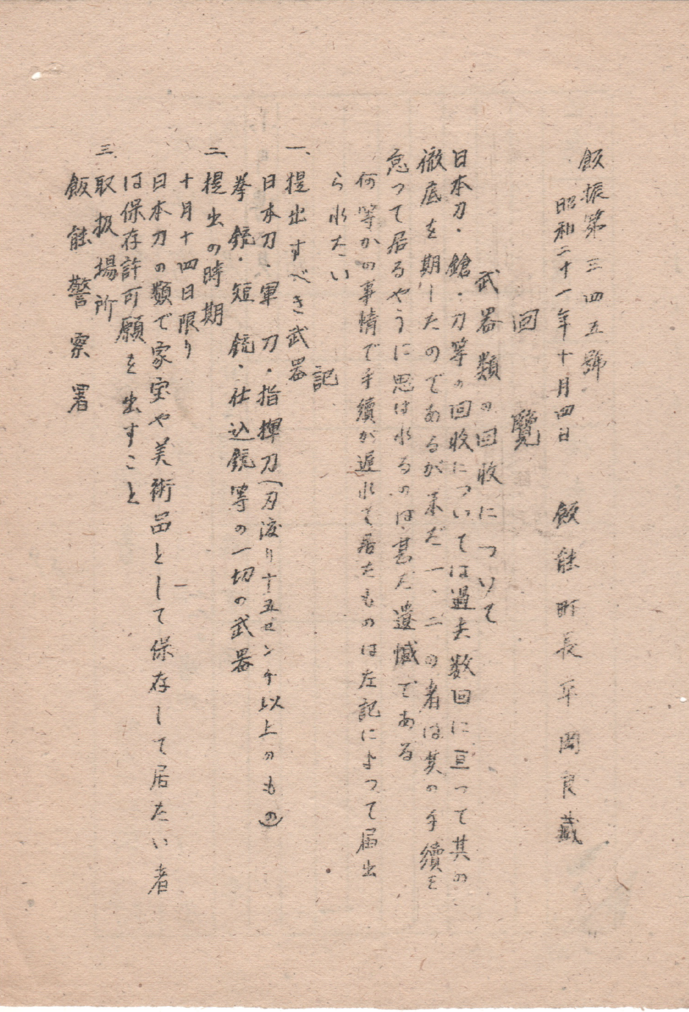 飯振第三四五號
昭和二十一年十月四日　飯能町長平岡良蔵
回覽
武器類の回收について
日本刀・鎗・刀等の回收については過去数回に亘って其の
徹底を期したのであるが未だ一、二の者は其の手續を
怠って居るやうに思はれるのは甚だ遺憾である
何等かの事情で手續が遅れて居たものは左記によって届出
られたい
記
一、提出すべき武器
日本刀・軍刀・指揮刀（刃渡り十五センチ以上のもの）
拳銃・短銃・仕込銃等の一切の武器
二、提出の時期
十月十四日限り
日本刀の類で家宝や美術品として保存して居たい者
は保存許可願を出すこと
三、取扱場所
飯能警察署